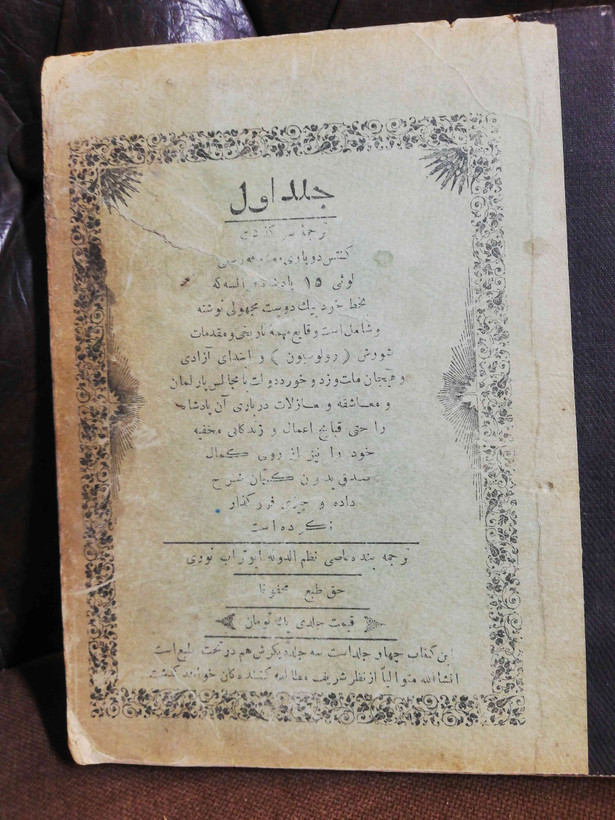 جلد اول
ترجمهٔ سر گذشت
کنتس دوباری
لوئی ۱۵ پادشاه فرانسه که
بخط خود بیك دوست مجهولی نوشته
و شامل است وقایع مهمه تاریخی و مقدمات
شورش ( رولوسیون ) و ابتدای آزادی
و هیجان ملت و زد و خورد دولت با مجالس پارلمان
و معاشقه و مغازلات درباری آن پادشاه
را حتی قبایح اعمال و زندگانی مخفیه
خود را نیز از روی کمال
صدق بدون کتمان شرح
داده و چیزی فرو گذار
نکرده است
ترجمه بنده عاصی نظم الدوله ابوتراب نوری
حق طبع محفوظ
قیمت جلدی تومان
این کتاب چهار جلد است سه جلد دیگرش هم در تحت طبع است
انشاءالله متوالیاً از نظر شریف مطالعه کنندگان خواهند گذشت